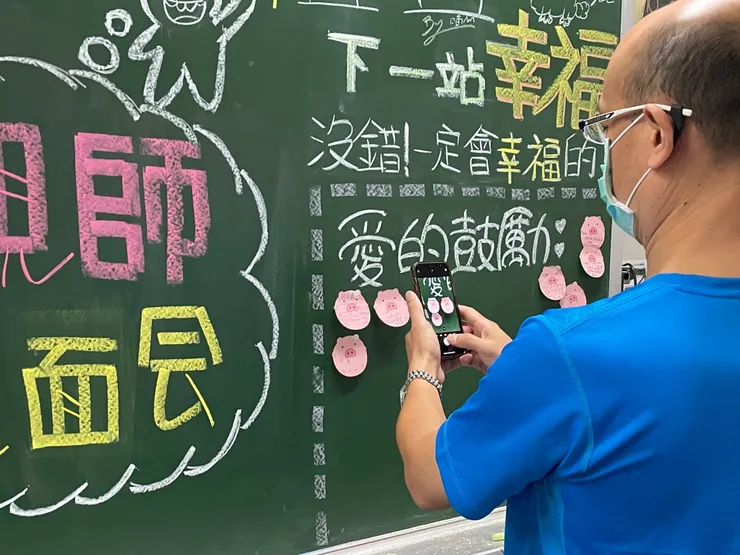 By
下一站幸福
沒錯!一定會幸福的
師
愛的鼓勵:
面会
愛